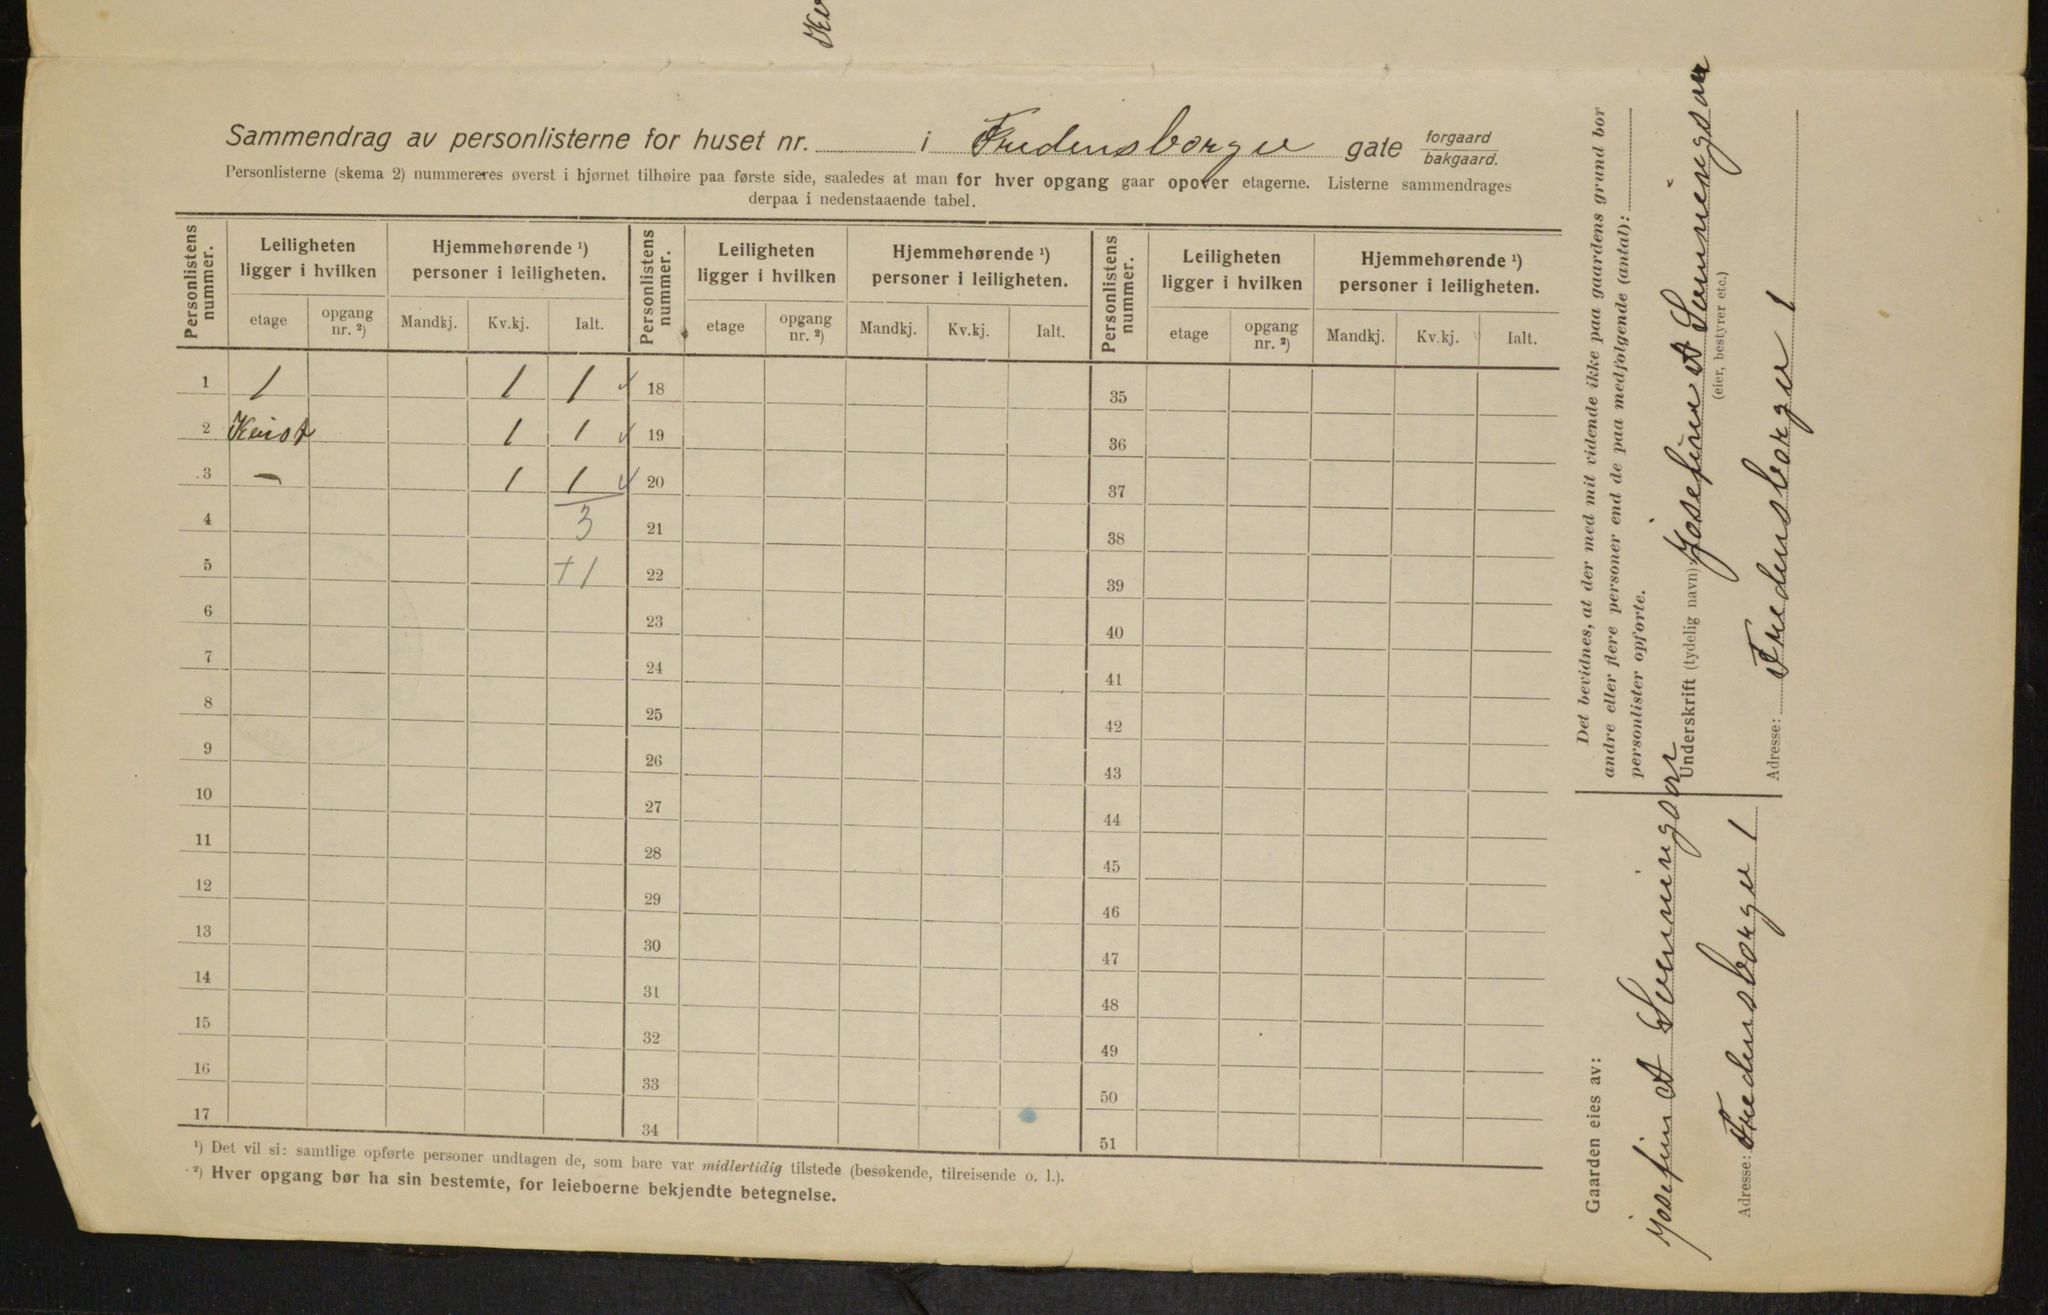 Sammendrag av personlisterne for huset nr. i Fredensborgv gate forgaard
bakgaard.
Personlisterne (skema 2) nummereres øverst i hjørnet tilhøire paa første side, saaledes at man for hver opgang gaar opover etagerne. Listerne sammendrages
derpaa i nedenstaaende tabel.
Personlistens nummer. Leiligheten ligger i hvilken Hjemmehørende ¹) personer i leiligheten. Personlistens nummer. Leiligheten ligger i hvilken Hjemmehørende ¹) personer i leiligheten. Personlistens nummer. Leiligheten ligger i hvilken Hjemmehørende ¹) personer i leiligheten.
etage opgang nr. ²) Mandkj. Kv.kj. Ialt. etage opgang nr. ²) Mandkj. Kv.kj. Ialt. etage opgang nr. ²) Mandkj. Kv.kj. Ialt.
1 1 1 1 18 35
2 Kvist 1 1 19 36
3 — 1 1 20 37
4 3 21 38
5 +1 22 39
6 23 40
7 24 41
8 25 42
9 26 43
10 27 44
11 28 45
12 29 46
13 30 47
14 31 48
15 32 49
16 33 50
17 34 51
¹) Det vil si: samtlige opførte personer undtagen de, som bare var midlertidig tilstede (besøkende, tilreisende o. l.).
²) Hver opgang bør ha sin bestemte, for leieboerne bekjendte betegnelse.
Det bevidnes, at der med mit vidende ikke paa gaardens grund bor
andre eller flere personer end de paa medfølgende (antal):
personlister opførte.
Underskrift (tydelig navn): Josefine A Svenningsen
(eier, bestyrer etc.)
Adresse: Fredensborgv 1
Gaarden eies av:
Josefine A Svenningsen
Adresse: Fredensborgv 1